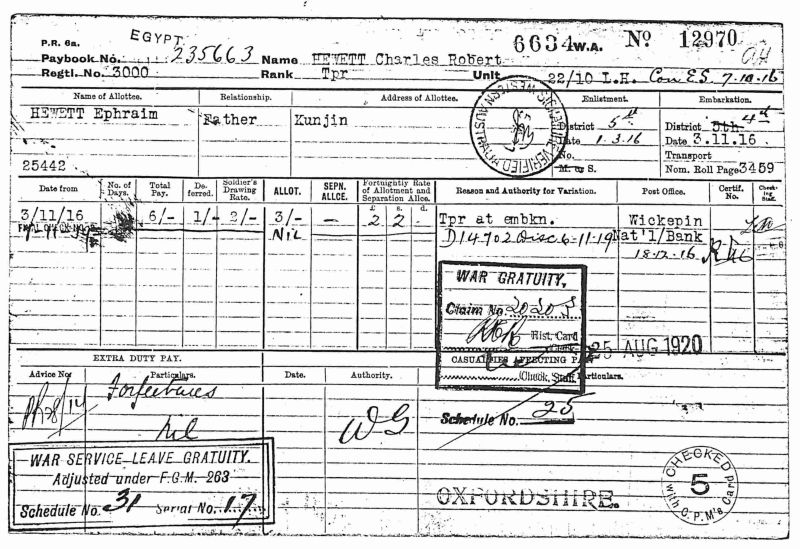 EGYPT
P.R. 6a.
Paybook No. 235663 Name HEWETT Charles Robert 6634 W.A. No 12970
Regtl. No. 3000 Rank Tpr Unit 22/10 L.H. Con E.S. 7-10-16
Name of Allottee. Relationship. Address of Allottee. Enlistment. Embarkation.
HEWETT Ephraim Father Kunjin District 5th District 5th 4th
Date 1.3.16 Date 3.11.16
No. Transport
25442 M. or S. Nom. Roll Page 3459
Date from No. of Days. Total Pay. Deferred. Soldier's Drawing Rate. ALLOT. SEPN. ALLCE. Fortnightly Rate of Allotment and Separation Allce. £ s. d. Reason and Authority for Variation. Post Office. Certif. No. Checking Stad.
3/11/16 6/- 1/- 2/- 3/- — 2 2 Tpr at embkn. Wickepin
7-11-19 Nil D14702 Disc 6-11-19 Nat'l/Bank
18.12.16
WAR GRATUITY,
Claim No 2020
Hist. Card
25 AUG 1920
CASUALTIES AFFECTING PAY
Check, Staff Particulars.
EXTRA DUTY PAY.
Advice No Particulars. Date. Authority.
Forfeitures
Nil
WG
Schedule No. 25
WAR SERVICE LEAVE GRATUITY.
Adjusted under F.G.M. 263
Schedule No. 31 Serial No. 17
OXFORDSHIRE.
CHECKED
5
with O.P.M's Card